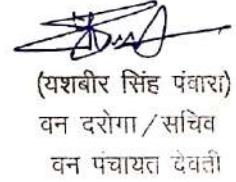 (यशबीर सिंह पंवारा)
वन दरोगा/सचिव
वन पंचायत देवती